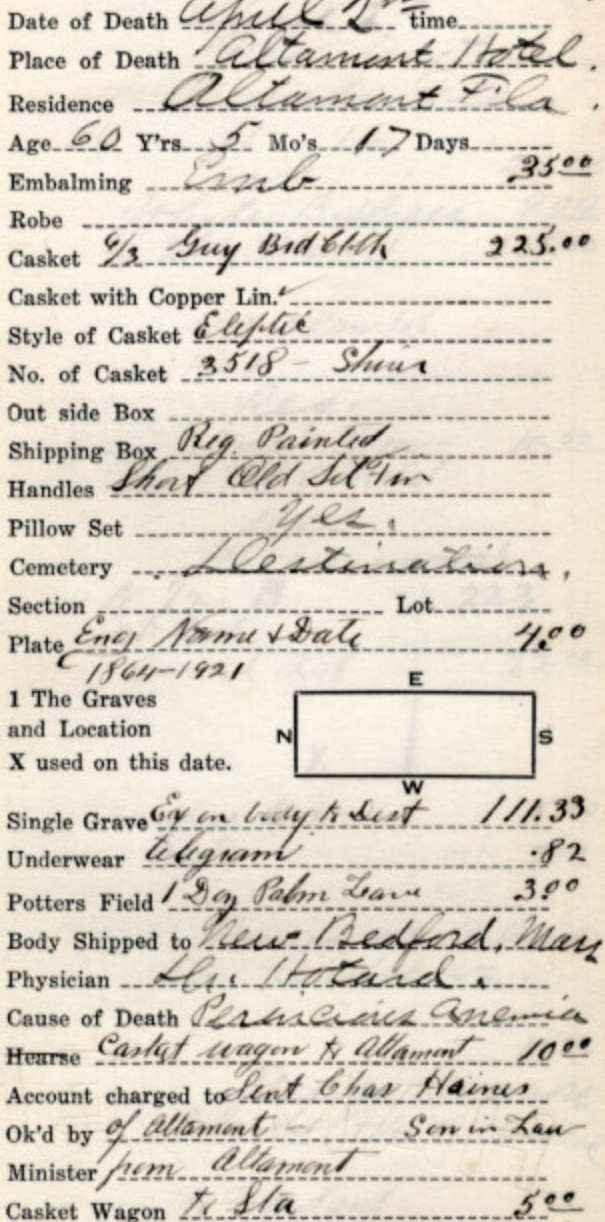 Date of Death April 2nd time
Place of Death Altamont Hotel.
Residence Altamont Fla.
Age 60 Y'rs 5 Mo's 17 Days
Embalming Emb 35.00
Robe
Casket 6/3 Guy Brd Cloth 225.00
Casket with Copper Lin.
Style of Casket Eleptic
No. of Casket 3518 -
Out side Box
Shipping Box Reg. Painted
Handles Short Old
Pillow Set Yes.
Cemetery Destination.
Section Lot
Plate Eng Name & Date 4.00
1864-1921
E
1 The Graves
and Location
X used on this date.
N S
W
Single Grave Ex on body to Dest 111.33
Underwear telegram .82
Potters Field 1 Doz Palm Leave 3.00
Body Shipped to New Bedford, Mass
Physician Dr. Hotard.
Cause of Death Pernicious Anemia
Hearse Casket wagon to Altamont 10.00
Account charged to Sent Chas Haines
Ok'd by of Altamont - Son in Law
Minister from Altamont
Casket Wagon to Sta 5.00